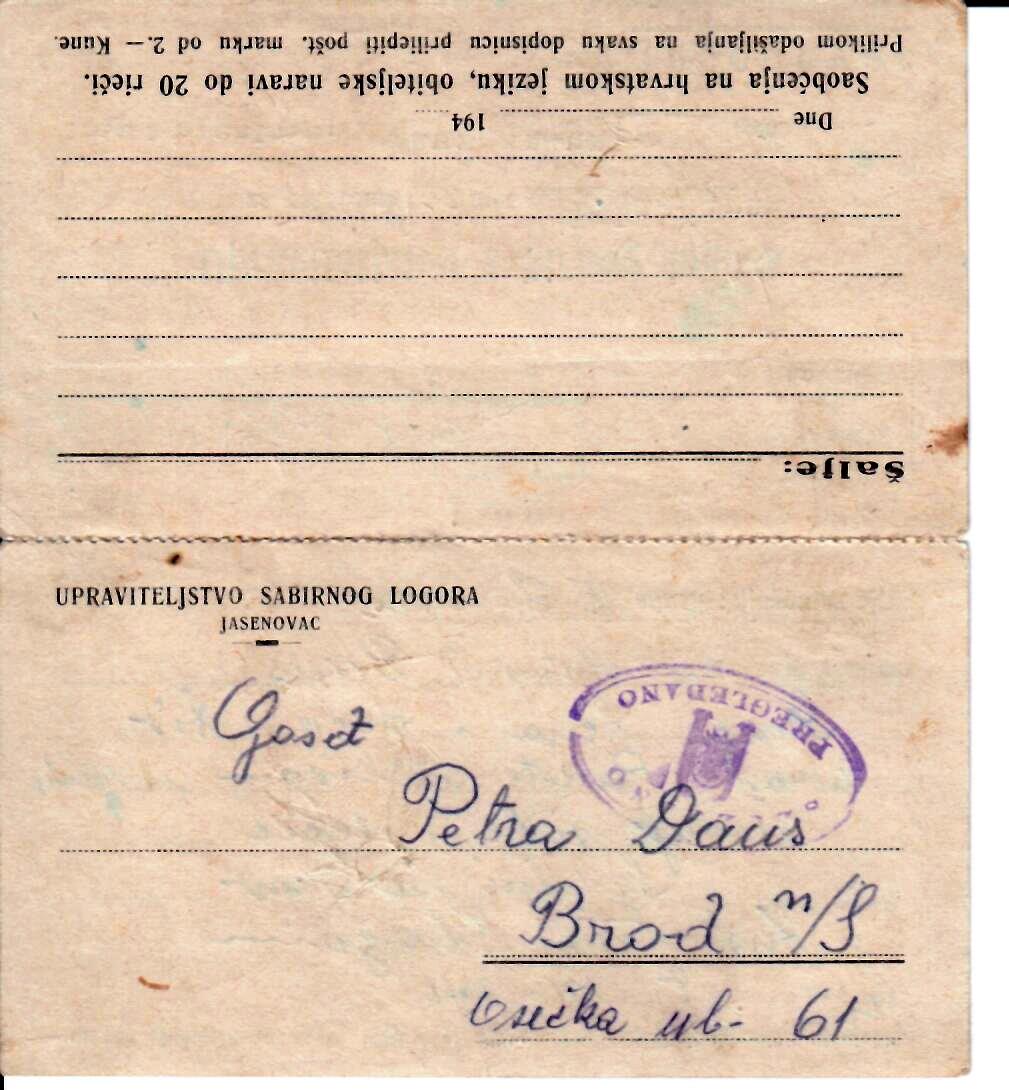 Prilikom odašiljanja na svaku dopisnicu priliepiti pošt. marku od 2.— Kune.
Saobćenja na hrvatskom jeziku, obiteljske naravi do 20 rieči.
Dne 194
Šalje:
UPRAVITELJSTVO SABIRNOG LOGORA
JASENOVAC
PREGLEDANO
Petra Daus
Brod n/S
Osečka ul- 61